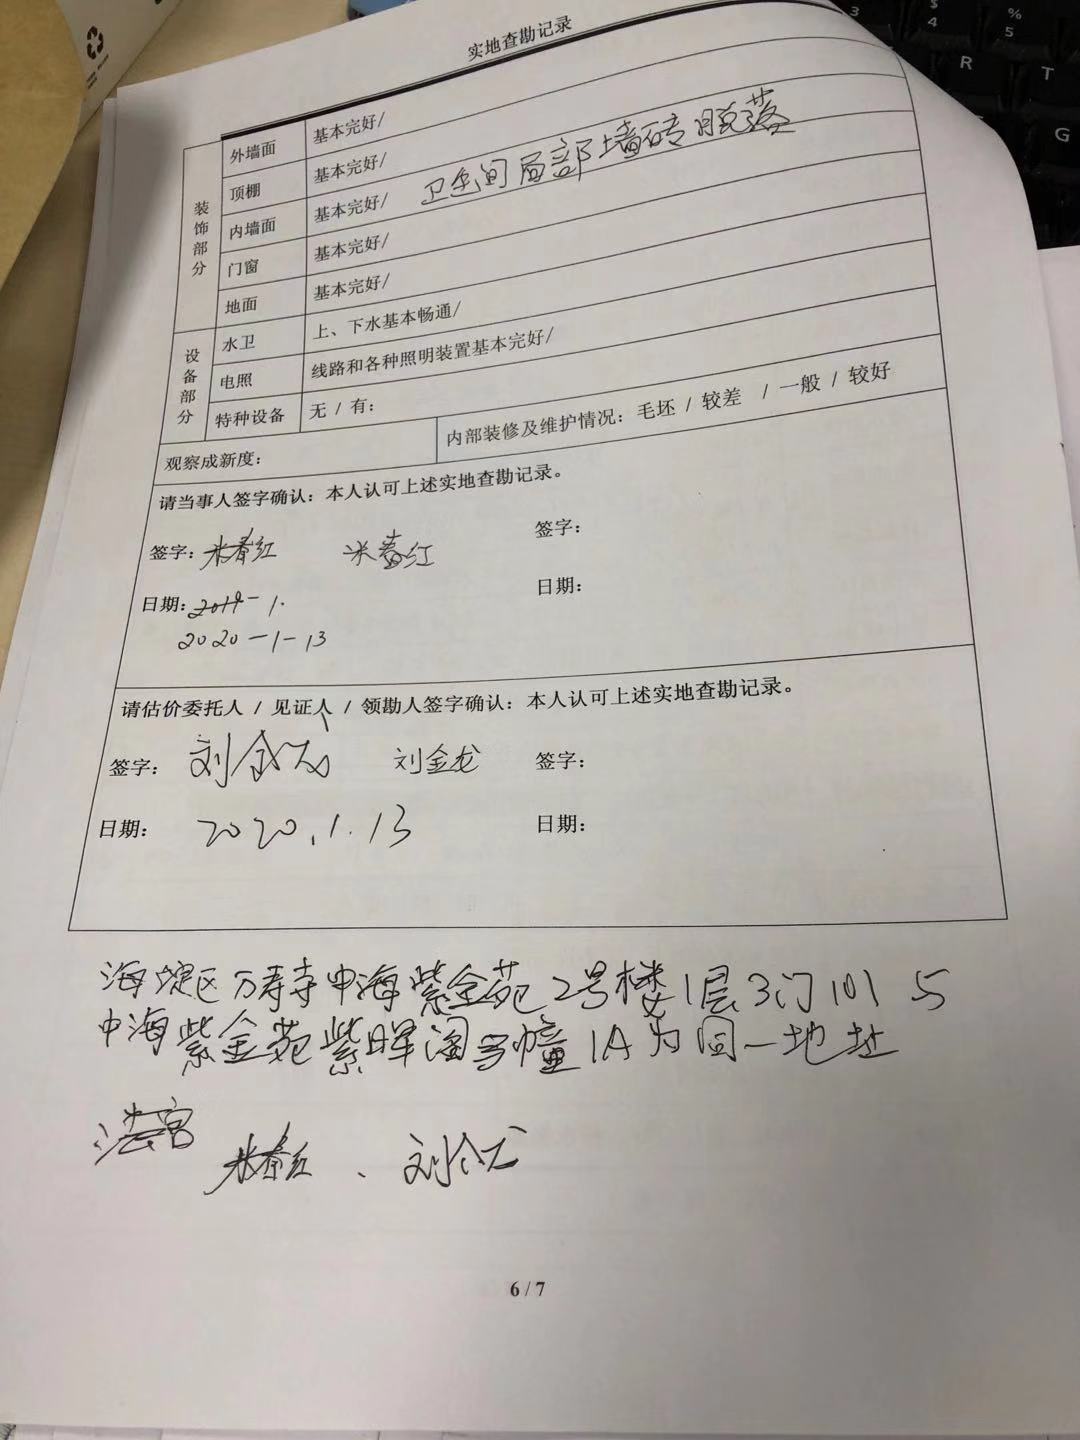 实地查勘记录
装饰部分
外墙面 基本完好/
顶棚 基本完好/
内墙面 基本完好/ 卫生间局部墙砖脱落
门窗 基本完好/
地面 基本完好/
设备部分
水卫 上、下水基本畅通/
电照 线路和各种照明装置基本完好/
特种设备 无 / 有：
观察成新度： 内部装修及维护情况：毛坯 / 较差 / 一般 / 较好
请当事人签字确认：本人认可上述实地查勘记录。
签字：米春红 米春红 签字：
日期：2019-1. 日期：
2020-1-13
请估价委托人 / 见证人 / 领勘人签字确认：本人认可上述实地查勘记录。
签字： 刘金龙 刘金龙 签字：
日期： 2020.1.13 日期：
海淀区万寿寺中海紫金苑2号楼1层3门101与
中海紫金苑紫晖阁号幢1A为同一地址
米春红 、 刘金龙
6 / 7
% 5
$ 4
3
R
T
G